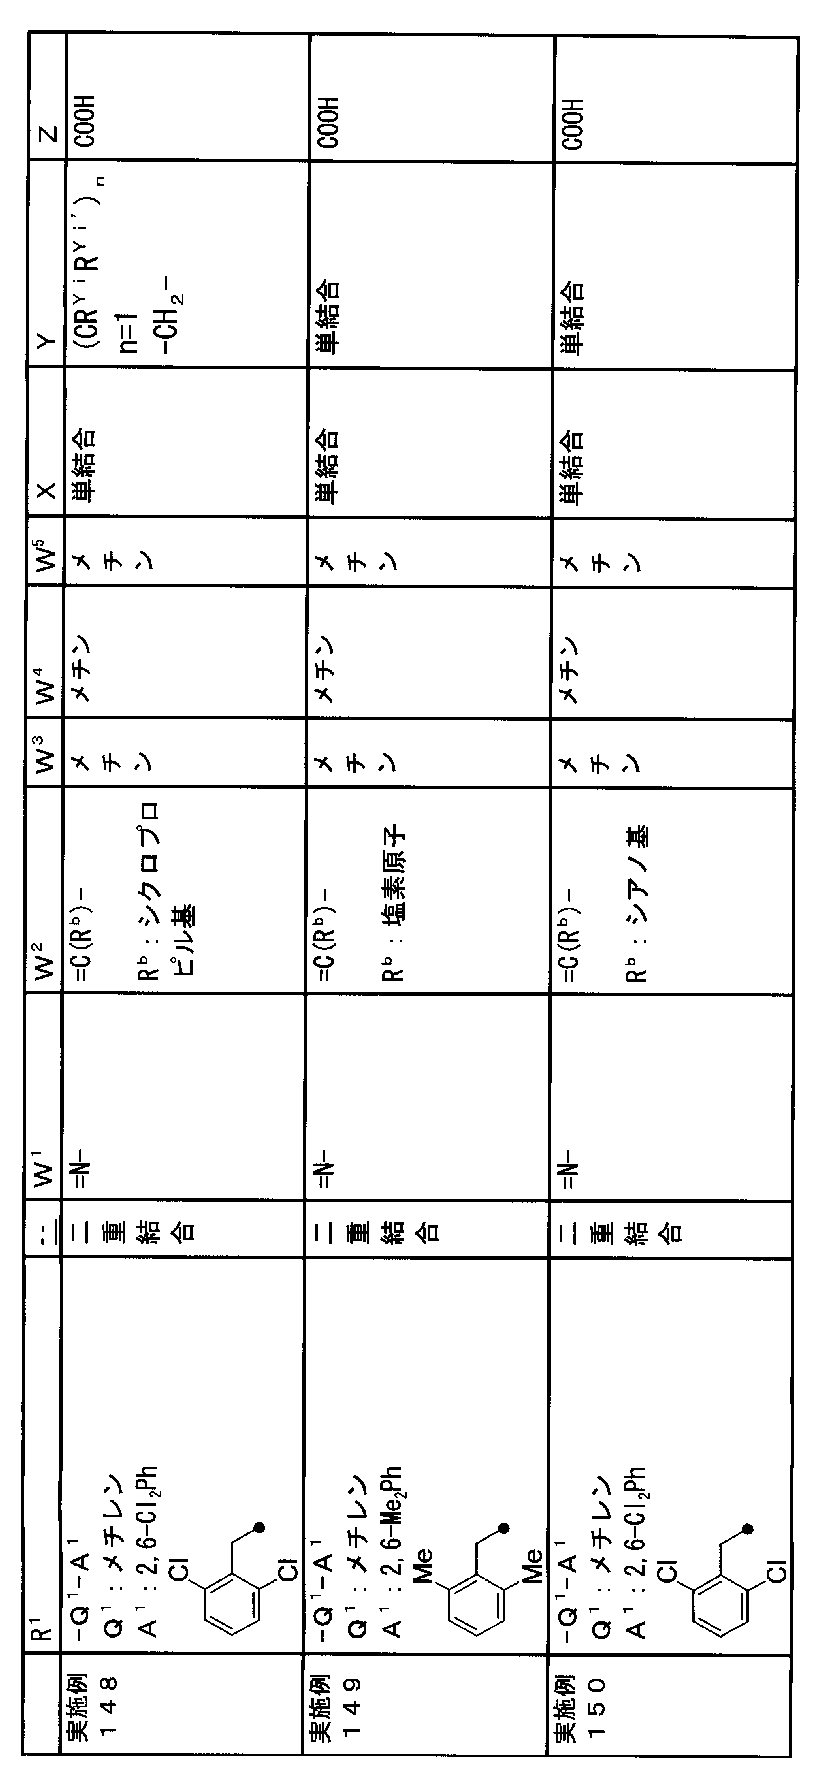 R¹ ⚌ W¹ W² W³ W⁴ W⁵ X Y Z
実施例
148
-Q¹-A¹
Q¹:メチレン
A¹:2,6-Cl₂Ph
Cl
Cl
二重結合
=N-
=C(Rᵇ)-
Rᵇ:シクロプロ
ピル基
メチン
メチン
メチン
単結合
(CRʸⁱRʸⁱ')ₙ
n=1
-CH₂-
COOH
実施例
149
-Q¹-A¹
Q¹:メチレン
A¹:2,6-Me₂Ph
Me
Me
二重結合
=N-
=C(Rᵇ)-
Rᵇ:塩素原子
メチン
メチン
メチン
単結合
単結合
COOH
実施例
150
-Q¹-A¹
Q¹:メチレン
A¹:2,6-Cl₂Ph
Cl
Cl
二重結合
=N-
=C(Rᵇ)-
Rᵇ:シアノ基
メチン
メチン
メチン
単結合
単結合
COOH